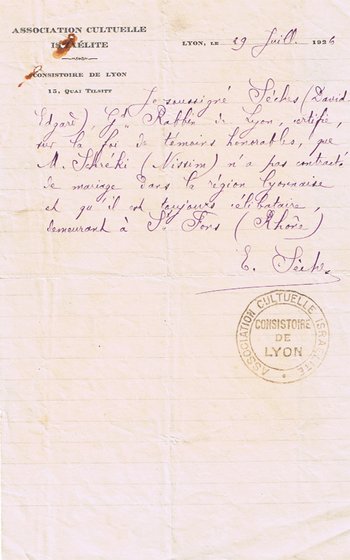 ASSOCIATION CULTUELLE
ISRAÉLITE
CONSISTOIRE DE LYON
15, QUAI TILSITT
LYON, LE 29 Juill. 1926
Je soussigné Séches (David
Edgard), Gd Rabbin de Lyon, certifie,
sur la foi de témoins honorables, que
M. Schréki (Nissim) n'a pas contracté
de mariage dans la région lyonnaise
et qu'il est toujours célibataire,
demeurant à St Fons (Rhône)
E. Séches
ASSOCIATION CULTUELLE ISRAÉLITE
CONSISTOIRE
DE
LYON